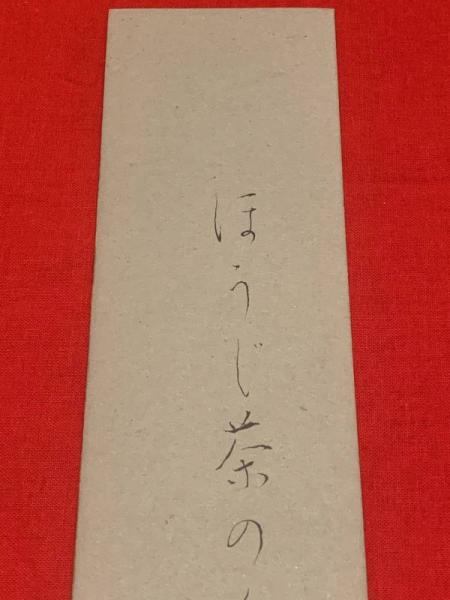 ほうじ茶の